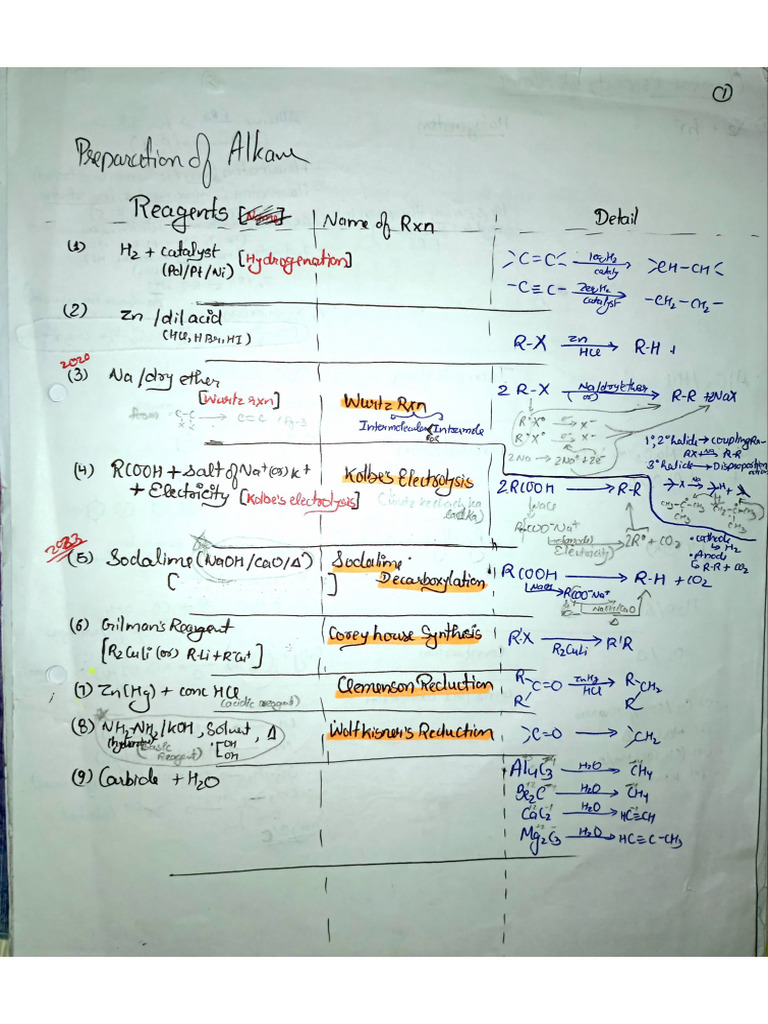 ①
Preparation of Alkane
Reagents [Name] | Name of Rxn | Detail
(1) H2 + catalyst [Hydrogenation]
(Pd/Pt/Ni)
>C=C< 1eq H2 → >CH-CH<
cataly
-C≡C- 2eq H2 → -CH2-CH2-
catalyst
(2) Zn/dil acid
(HCl, HBr, HI)
R-X Zn → R-H +
HCl
2020
(3) Na/dry ether
[Wurtz rxn]
Wurtz Rxn
Intermolecular Intramole
2 R-X Na/dry ether → R-R + 2NaX
(or)
2Na → 2Na+ + 2e-
1°, 2° halide → coupling Rxn
RX → R-R
3° halide → Disproportionation
(4) RCOOH + salt of Na+ (or) K+
+ Electricity [Kolbe's electrolysis]
Kolbe's Electrolysis
2RCOOH → R-R
RCOO-Na+
Electricity → 2R• + CO2
• cathode
↳ H2
• Anode
↳ R-R + CO2
2023
(5) Sodalime (NaOH/CaO/Δ)
[ ]
Sodalime
Decarboxylation
RCOOH → R-H + CO2
RCOO-Na+
NaOH/CaO
(6) Gilman's Reagent
[R2CuLi (or) R-Li + R-Cu+]
Corey house Synthesis
R'X → R'R
R2CuLi
(7) Zn(Hg) + conc HCl
(acidic reagent)
Clemenson Reduction
R C=O ZnHg → R CH2
R' HCl R'
(8) NH2-NH2/KOH, Solvent, Δ
(hydrazine) (basic reagent) [OH
OH
Wolfkisner's Reduction
>C=O → >CH2
(9) Carbide + H2O
Al4C3 H2O → CH4
Be2C H2O → CH4
CaC2 H2O → HC≡CH
Mg2C3 H2O → HC≡C-CH3